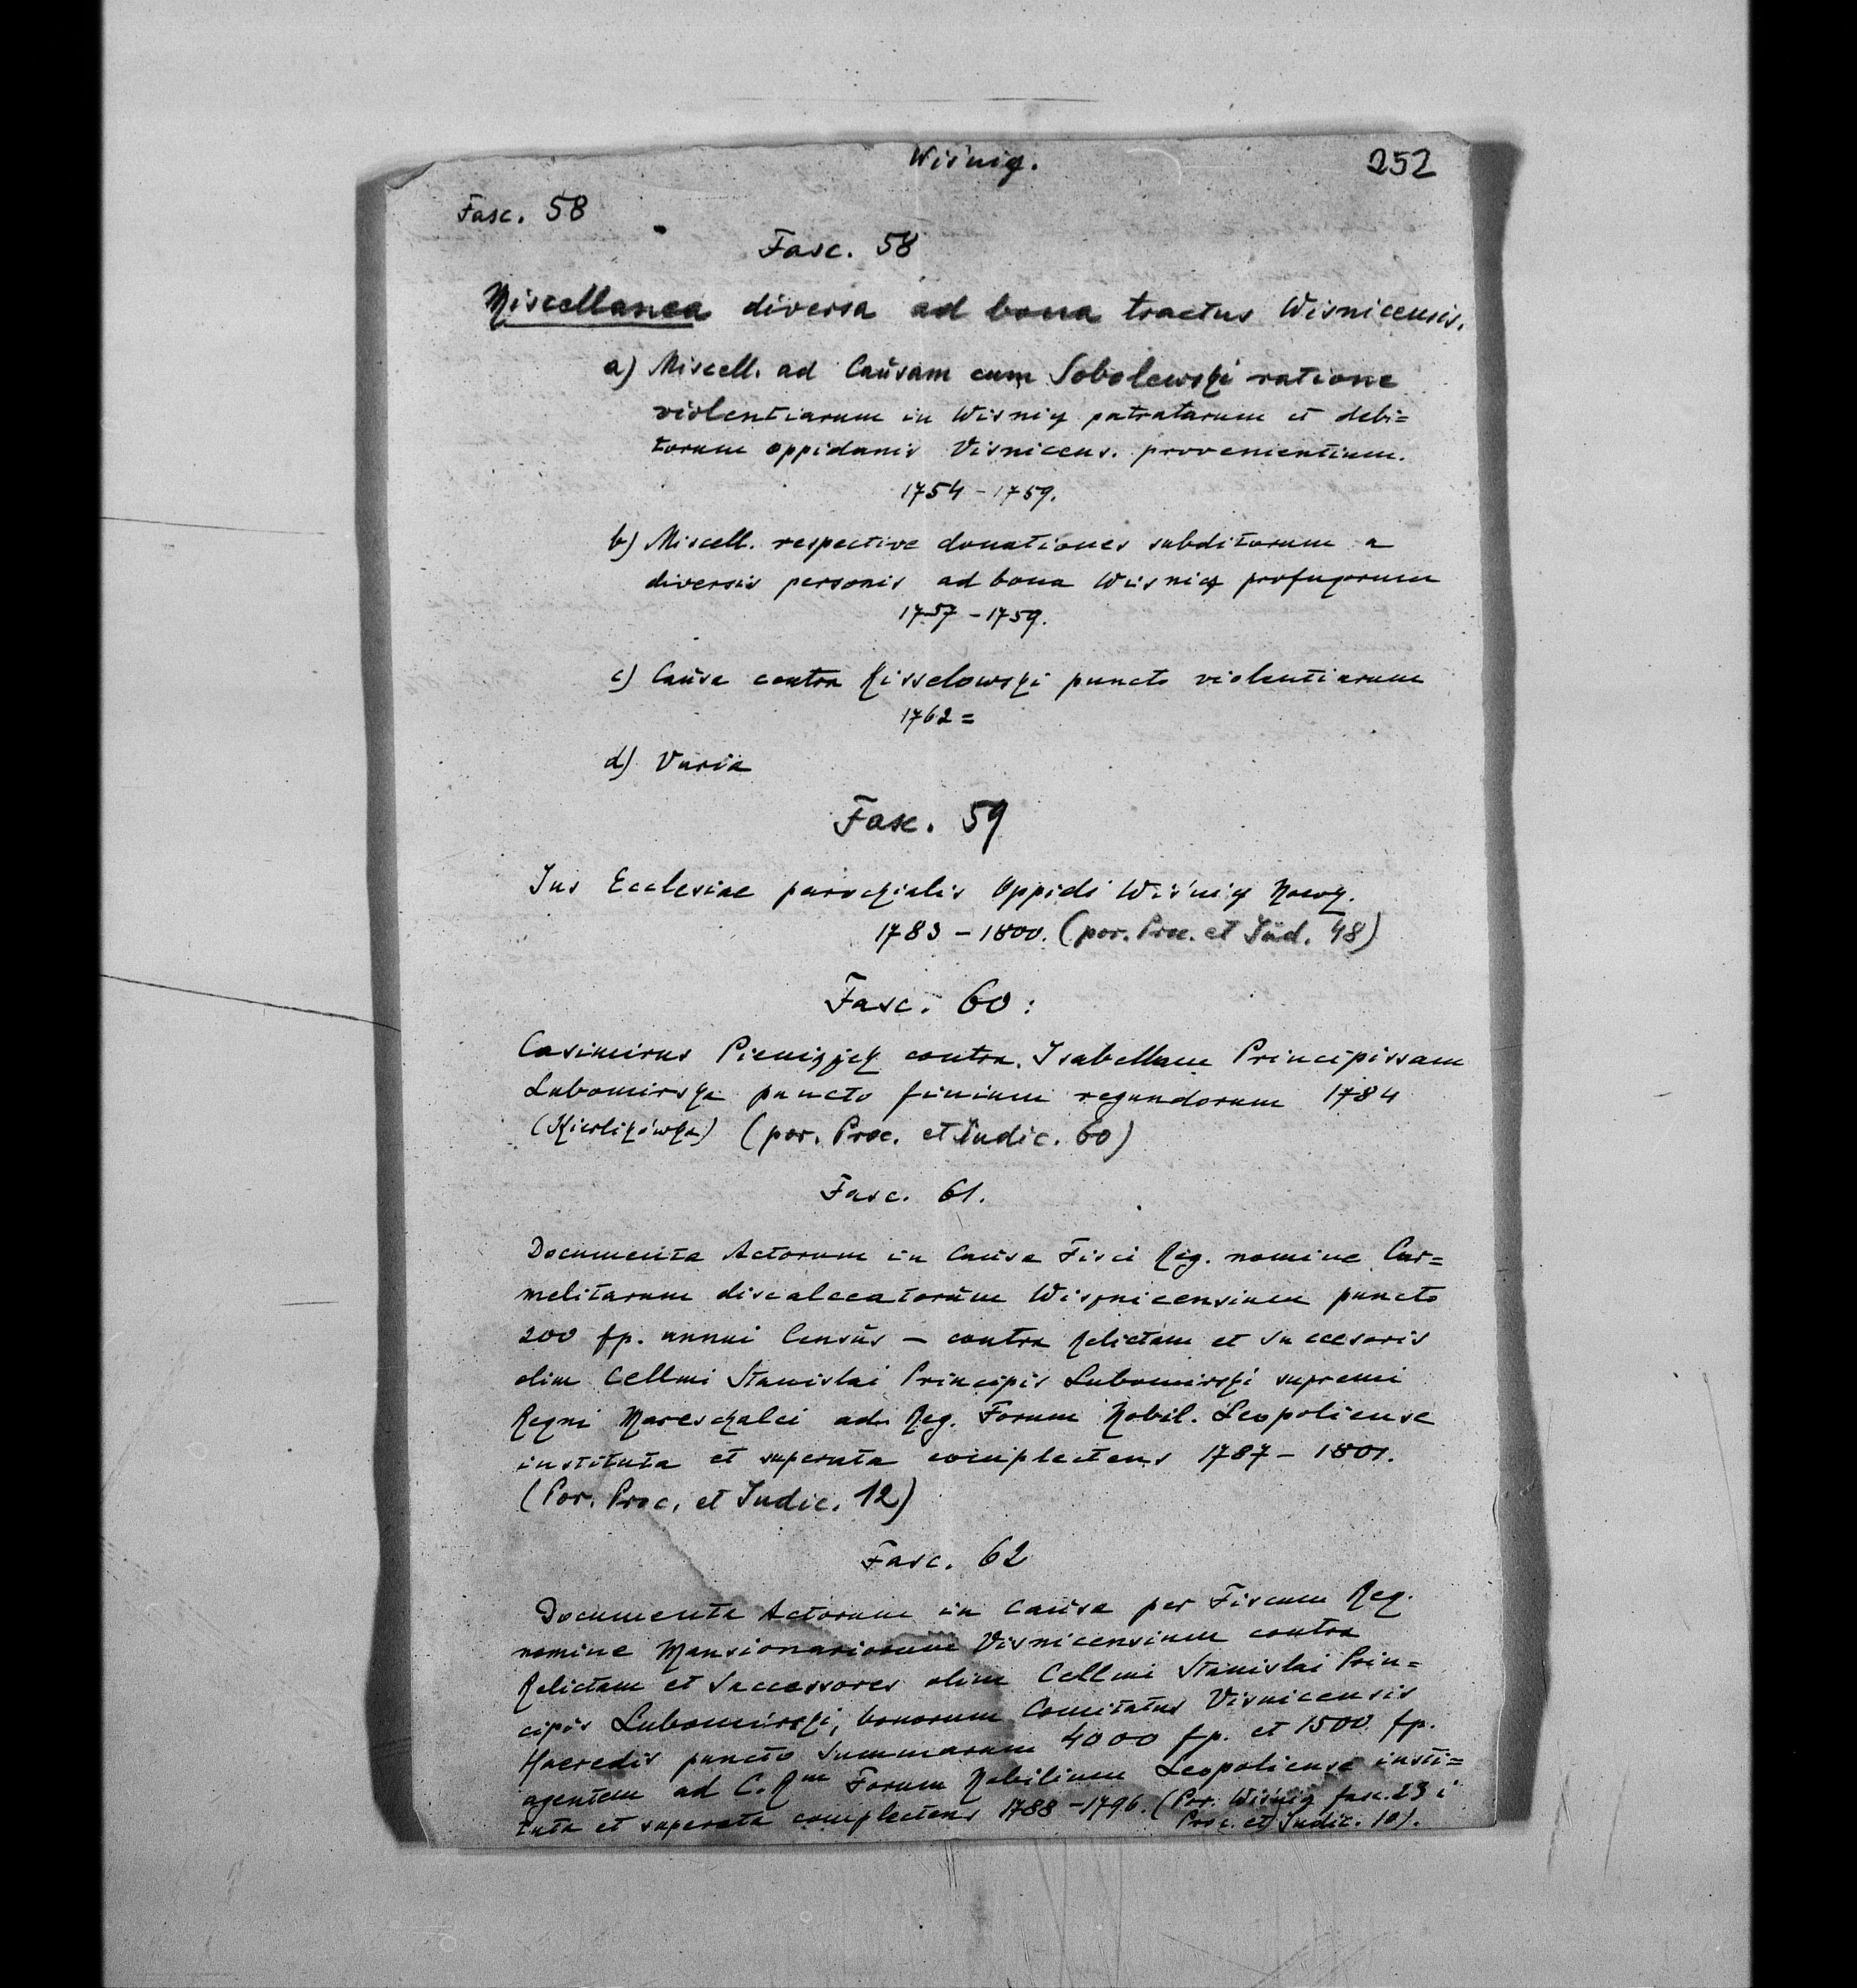 Wiśnicz.
252
Fasc. 58
Fasc. 58
Miscellanea diversa ad bona tractus Wisnicensis.
a) Miscell. ad Causam cum Sobolewski ratione
violentiarum in Wisnicz patratarum et debi=
torum oppidanis Visnicens. provenientium.
1754 - 1759.
b) Miscell. respective donationes subditorum a
diversis personis ad bona Wisnicz profugorum
1757 - 1759.
c) Causa contra Kisselowski puncto violentiarum
1762 =
d) Varia
Fasc. 59
Jus Ecclesiae parochialis Oppidi Wiśnicz Nowy.
1783 - 1800. (por. Proc. et Jud. 48)
Fasc. 60:
Casimirus Pieniążek contra Isabellam Principissam
Lubomirska puncto finium regundorum 1784
(Kierlikówka) (por. Proc. et Iudic. 60)
Fasc. 61.
Documenta Actorum in Causa Fisci Reg. nomine Car=
melitarum discalceatorum Wisnicensium puncto
200 fp. annui Census – contra Relictam et Succesoris
olim Cellmi Stanislai Principis Lubomirski supremi
Regni Mareschalci ad Reg. Forum Nobil. Leopoliense
instituta et superata complectens 1787 - 1801.
(Por. Proc. et Judic. 12)
Fasc. 62
Documenta Actorum in causa per Fiscum Reg.
nomine Mansionariorum Visnicensium contra
Relictam et Successores olim Cellmi Stanislai Prin=
cipis Lubomirski, bonorum Comitatus Visnicensis
Haeredis puncto Summarum 4000 fp. et 1500 fp.
agentem ad C. Rm Forum Nobilium Leopoliense insti=
tuta et superata complectens 1788 - 1796. (Por. Wiśnicz fasc. 23 i
Proc. et Judic. 10).